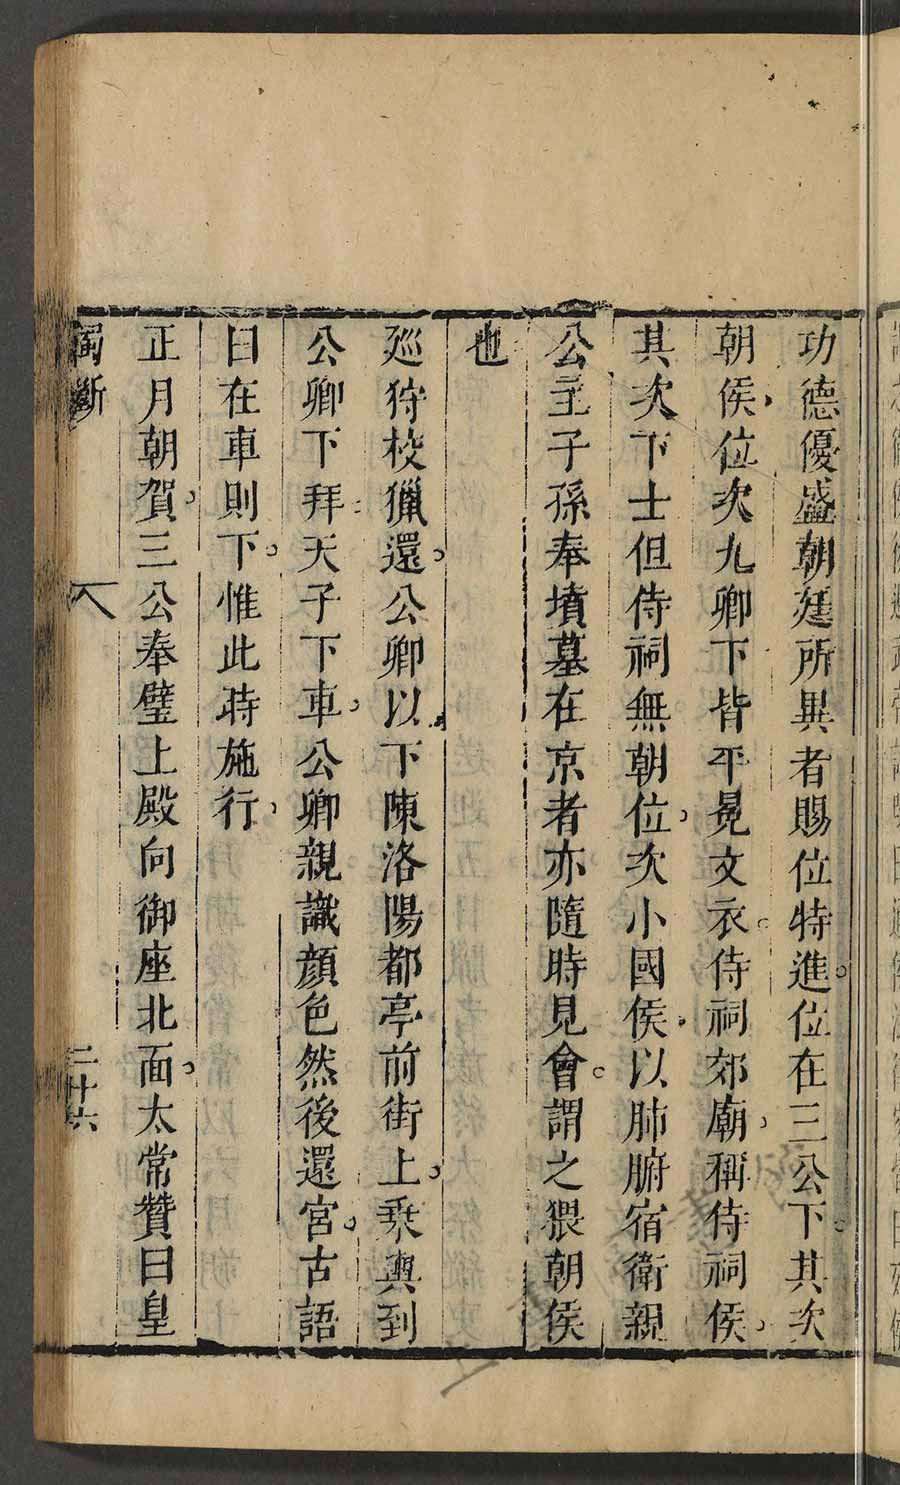 功德優盛朝廷所異者賜位特進位在三公下其次
朝侯位次九卿下皆平冕文衣侍祠郊廟稱侍祠侯
其次下士但侍祠無朝位次小國侯以肺腑宿衛親
公主子孫奉墳墓在京者亦隨時見會謂之猥朝侯
也
巡狩校獵還公卿以下陳洛陽都亭前街上乘輿到
公卿下拜天子下車公卿親識顏色然後還宮古語
曰在車則下惟此時施行
正月朝賀三公奉璧上殿向御座北面太常贊曰皇
獨斷
二十六